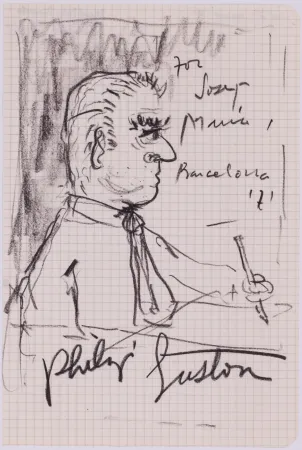 For
Josep
Maria,
Barcelona
'71
Philip Guston